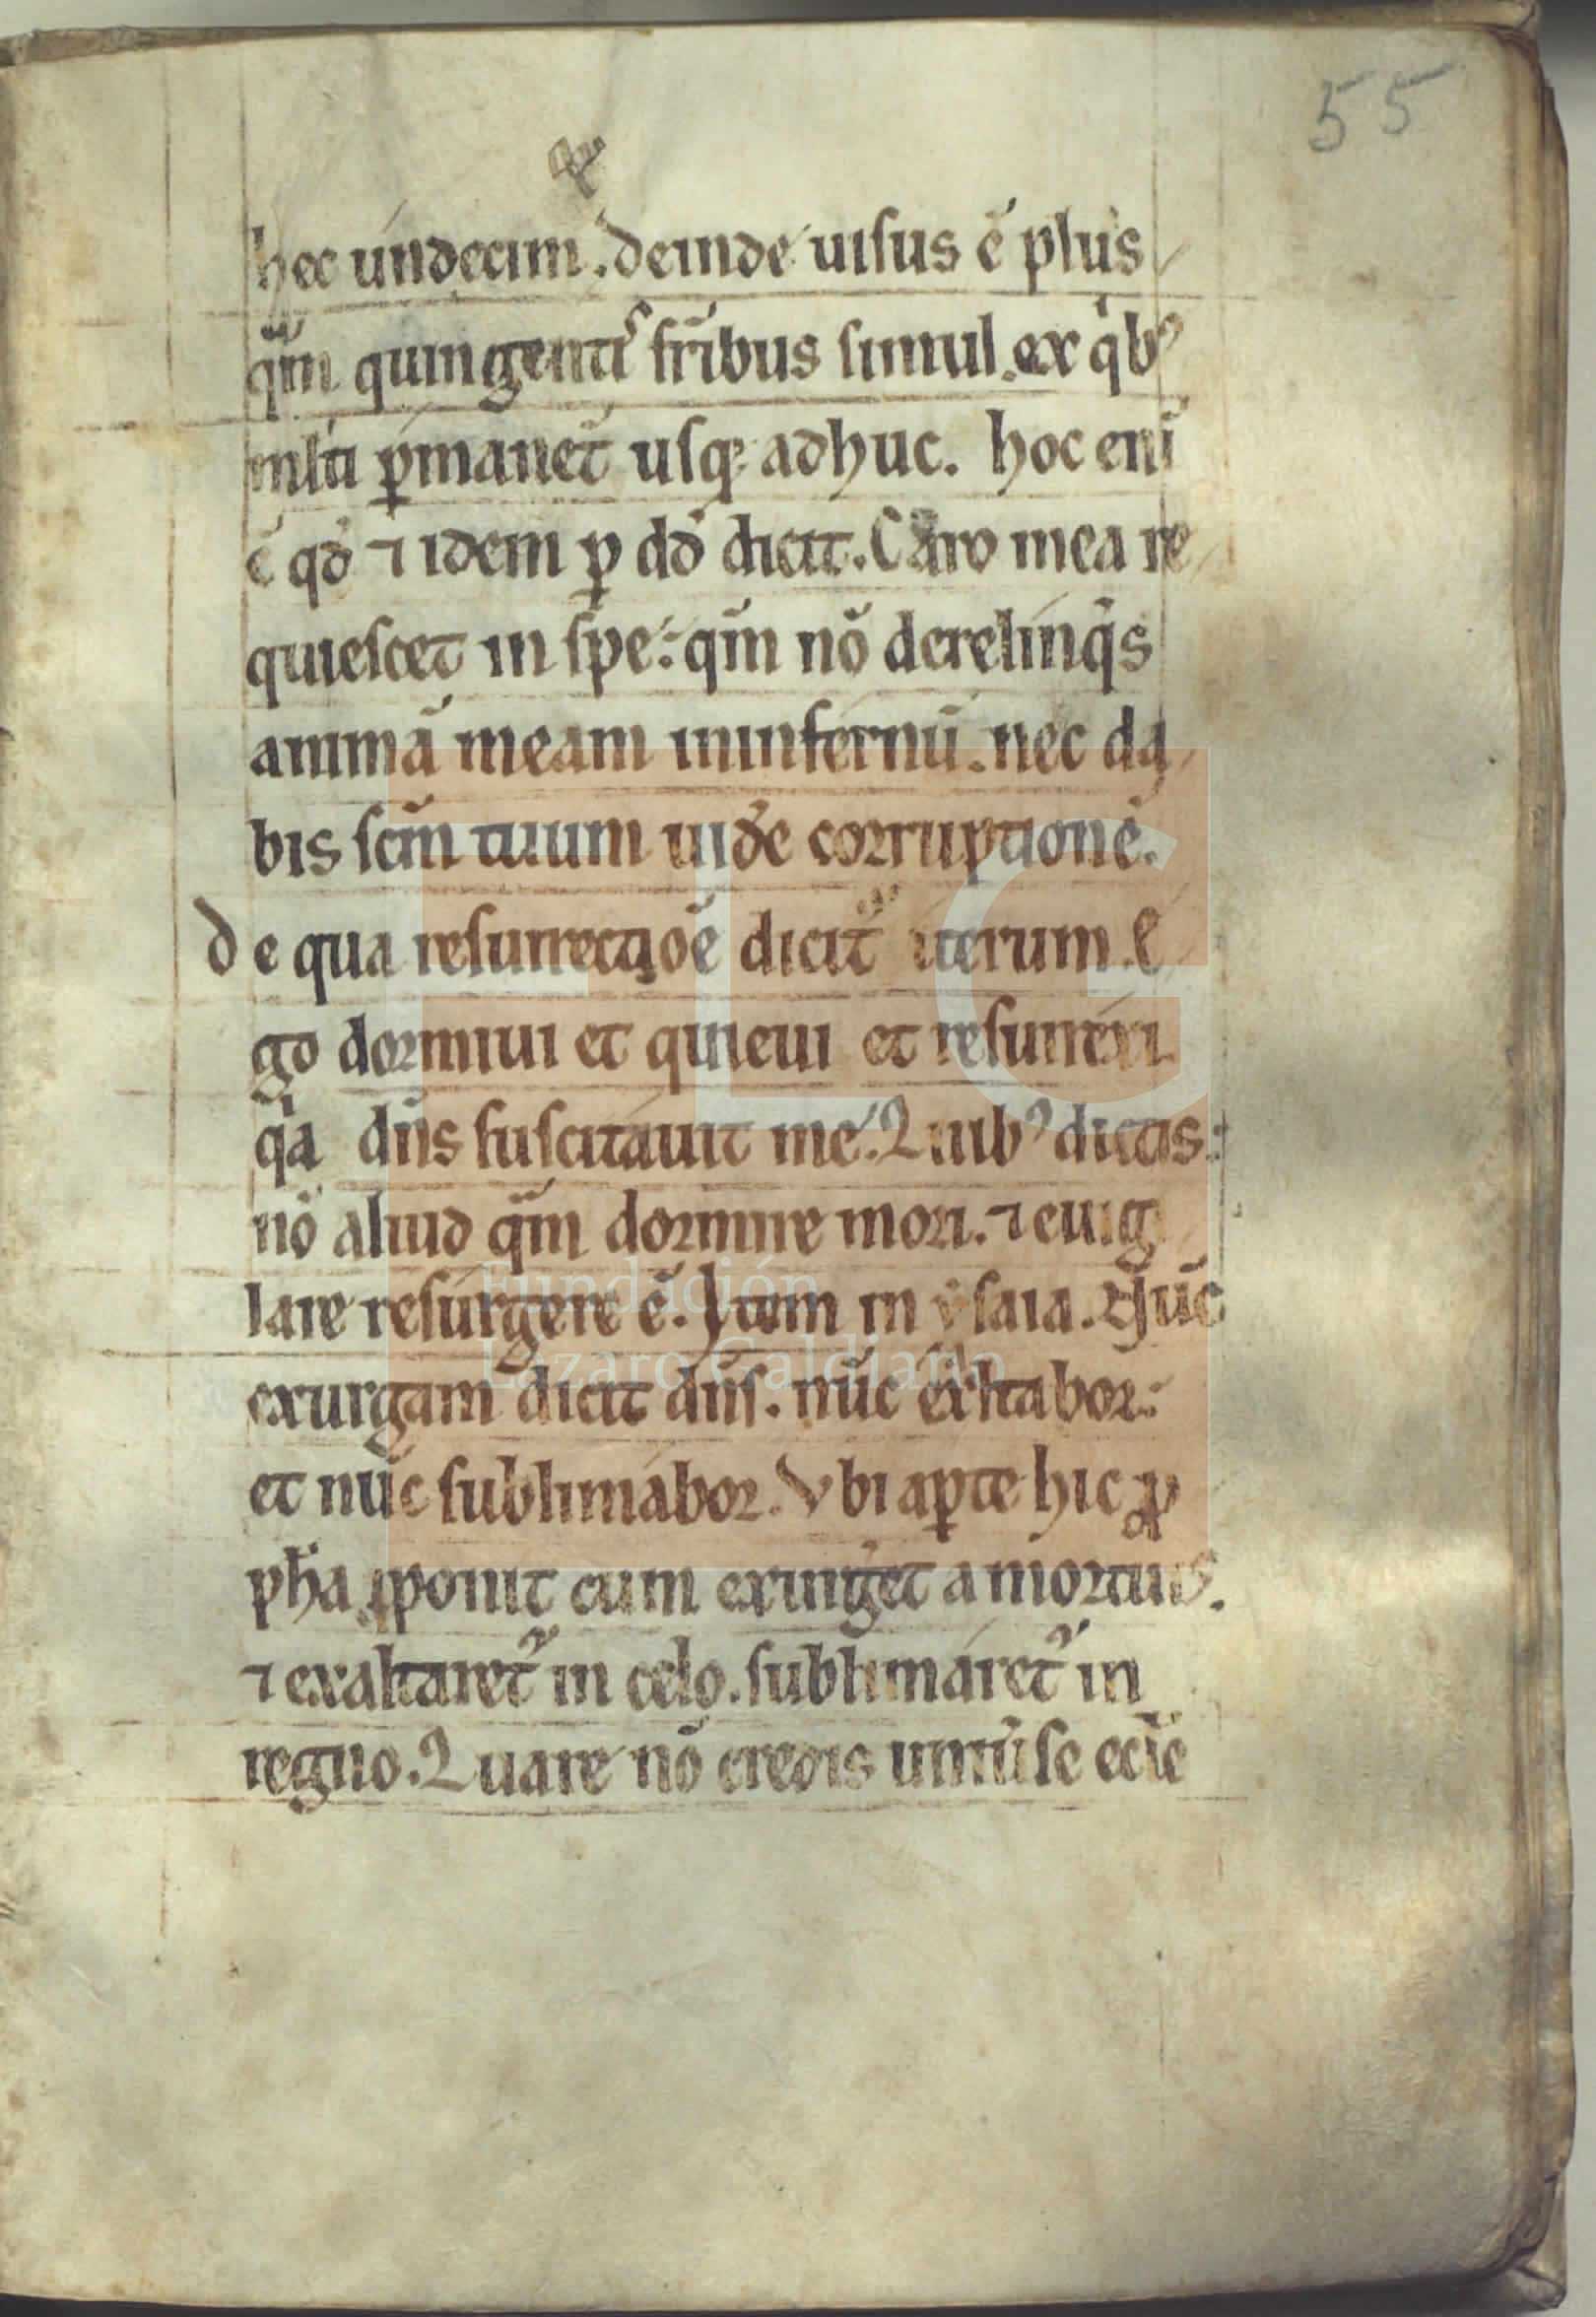 55
hec undecim. deinde uisus ē plus
qm̄ quingentis fr̄ibus simul. ex qͥbꝰ
ml̄ti ꝑmanēt usqꝫ adhuc. hoc enī
ē qd̄ ⁊ idem ꝑ dd̄ dicit. Caro mea re
quiescet in spe: qm̄ nō derelinqͥs
animā meam ininfernū. nec da
bis scm̄ tuum uidē corruptionē.
de qua resurrectiōe dicit iterum. E
go dormiui et quieui et resurrexi
qͥa dn̄s suscitauit me. Quibꝰ dictis:
nō aliud qm̄ dormire mori. ⁊ euigi
lare resurgere ē. Item in ysaia. Nūc
exurgam dicit dn̄s. nūc exltabor:
et nūc sublimabor. Vbi aꝑte hic ꝓ
ph̄a ponit cum exurget a mortuis.
⁊ exaltaret᷑ in celo. sublimaret᷑ in
regno. Quare nō credis
Fundación
Lázaro Galdiano
FLG